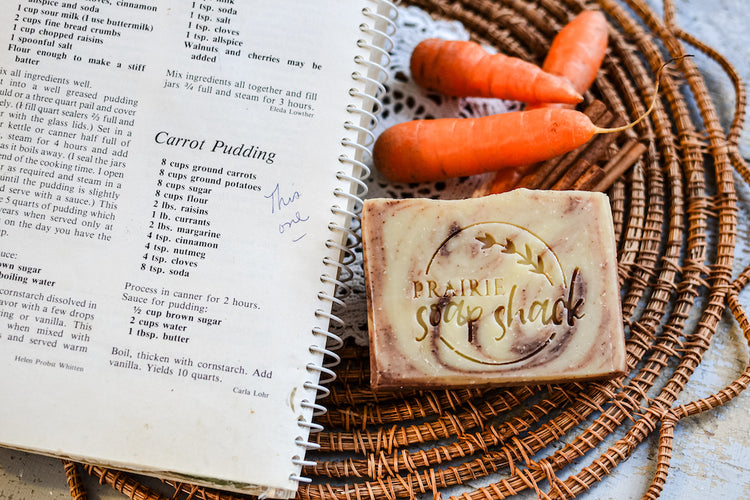 allspice and soda
1 cup sour milk (I use buttermilk)
2 cups fine bread crumbs
1 cup chopped raisins
1 spoonful salt
Flour enough to make a stiff
batter
ix all ingredients well.
t into a well greased pudding
ould or a three quart pail and cover
ely. (I fill quart sealers ⅔ full and
r with the glass lids.) Set in a
r kettle or canner half full of
, steam for 4 hours and add
as it boils away. (I seal the jars
end of the cooking time. I open
r as required and steam in a
until the pudding is slightly
d serve with a sauce.) This
s 5 quarts of pudding which
years when served only at
on the day you have the
uce:
brown sugar
boiling water
cornstarch dissolved in
avor with a few drops
ing or vanilla. This
when mixed with
and served warm
Helen Probst Whitten
1 tsp. soda
1 tsp. salt
2 tsp. cinnamon
1 tsp. cloves
1 tsp. allspice
Walnuts and cherries may be
added
Mix ingredients all together and fill
jars ¾ full and steam for 3 hours.
Eleda Lowther
Carrot Pudding
8 cups ground carrots
8 cups ground potatoes
8 cups sugar
8 cups flour
2 lbs. raisins
1 lb. currants
2 lbs. margarine
4 tsp. cinnamon
4 tsp. nutmeg
4 tsp. cloves
8 tsp. soda
This
one
Process in canner for 2 hours.
Sauce for pudding:
½ cup brown sugar
2 cups water
1 tbsp. butter
Boil, thicken with cornstarch. Add
vanilla. Yields 10 quarts.
Carla Lohr
PRAIRIE
soap shack